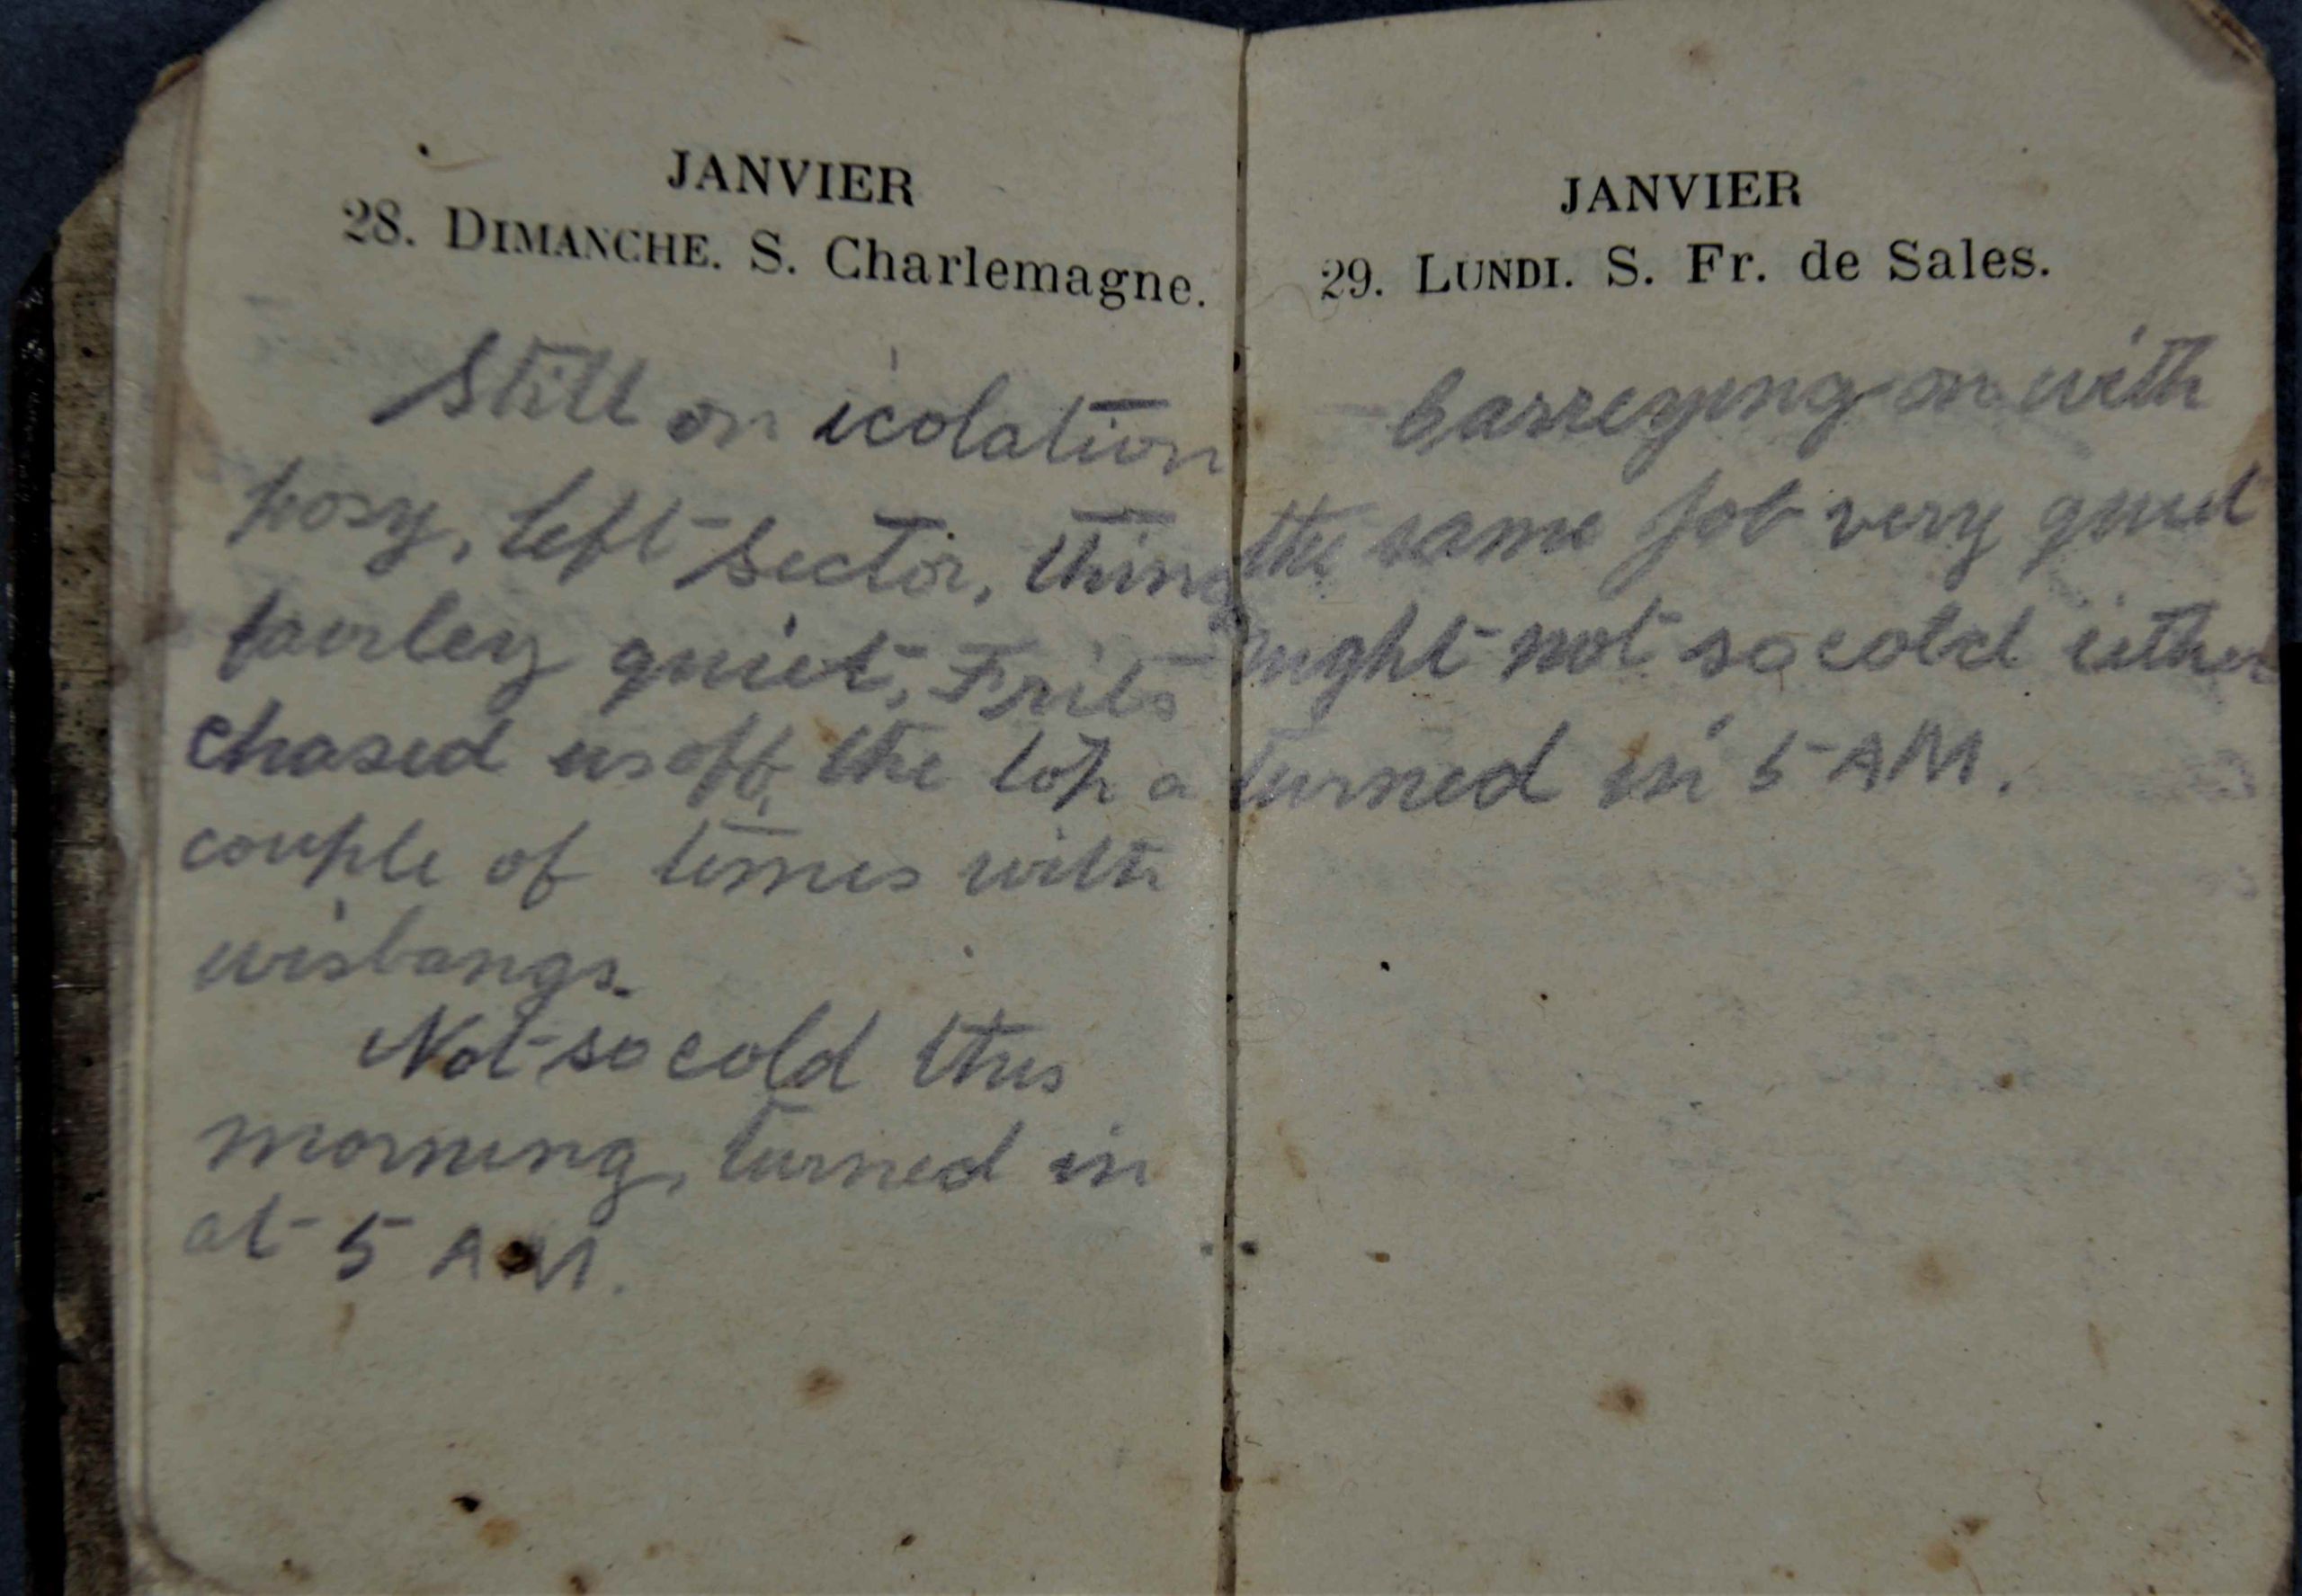 JANVIER
28. DIMANCHE. S. Charlemagne.
Still on icolation
posy, left sector, things
fairley quiet, Frits
chased us off the top a
couple of times with
wisbangs.
Not so cold this
morning, turned in
at 5 AM.
JANVIER
29. LUNDI. S. Fr. de Sales.
Carreying on with
the same job very quiet
night not so cold either
turned in 5 AM.